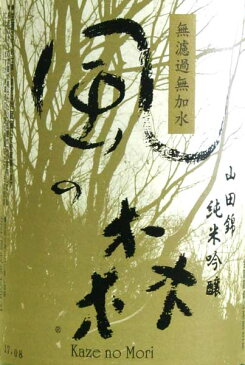 無濾過無加水
風の森
山田錦
純米吟醸
Kaze no Mori
17.08